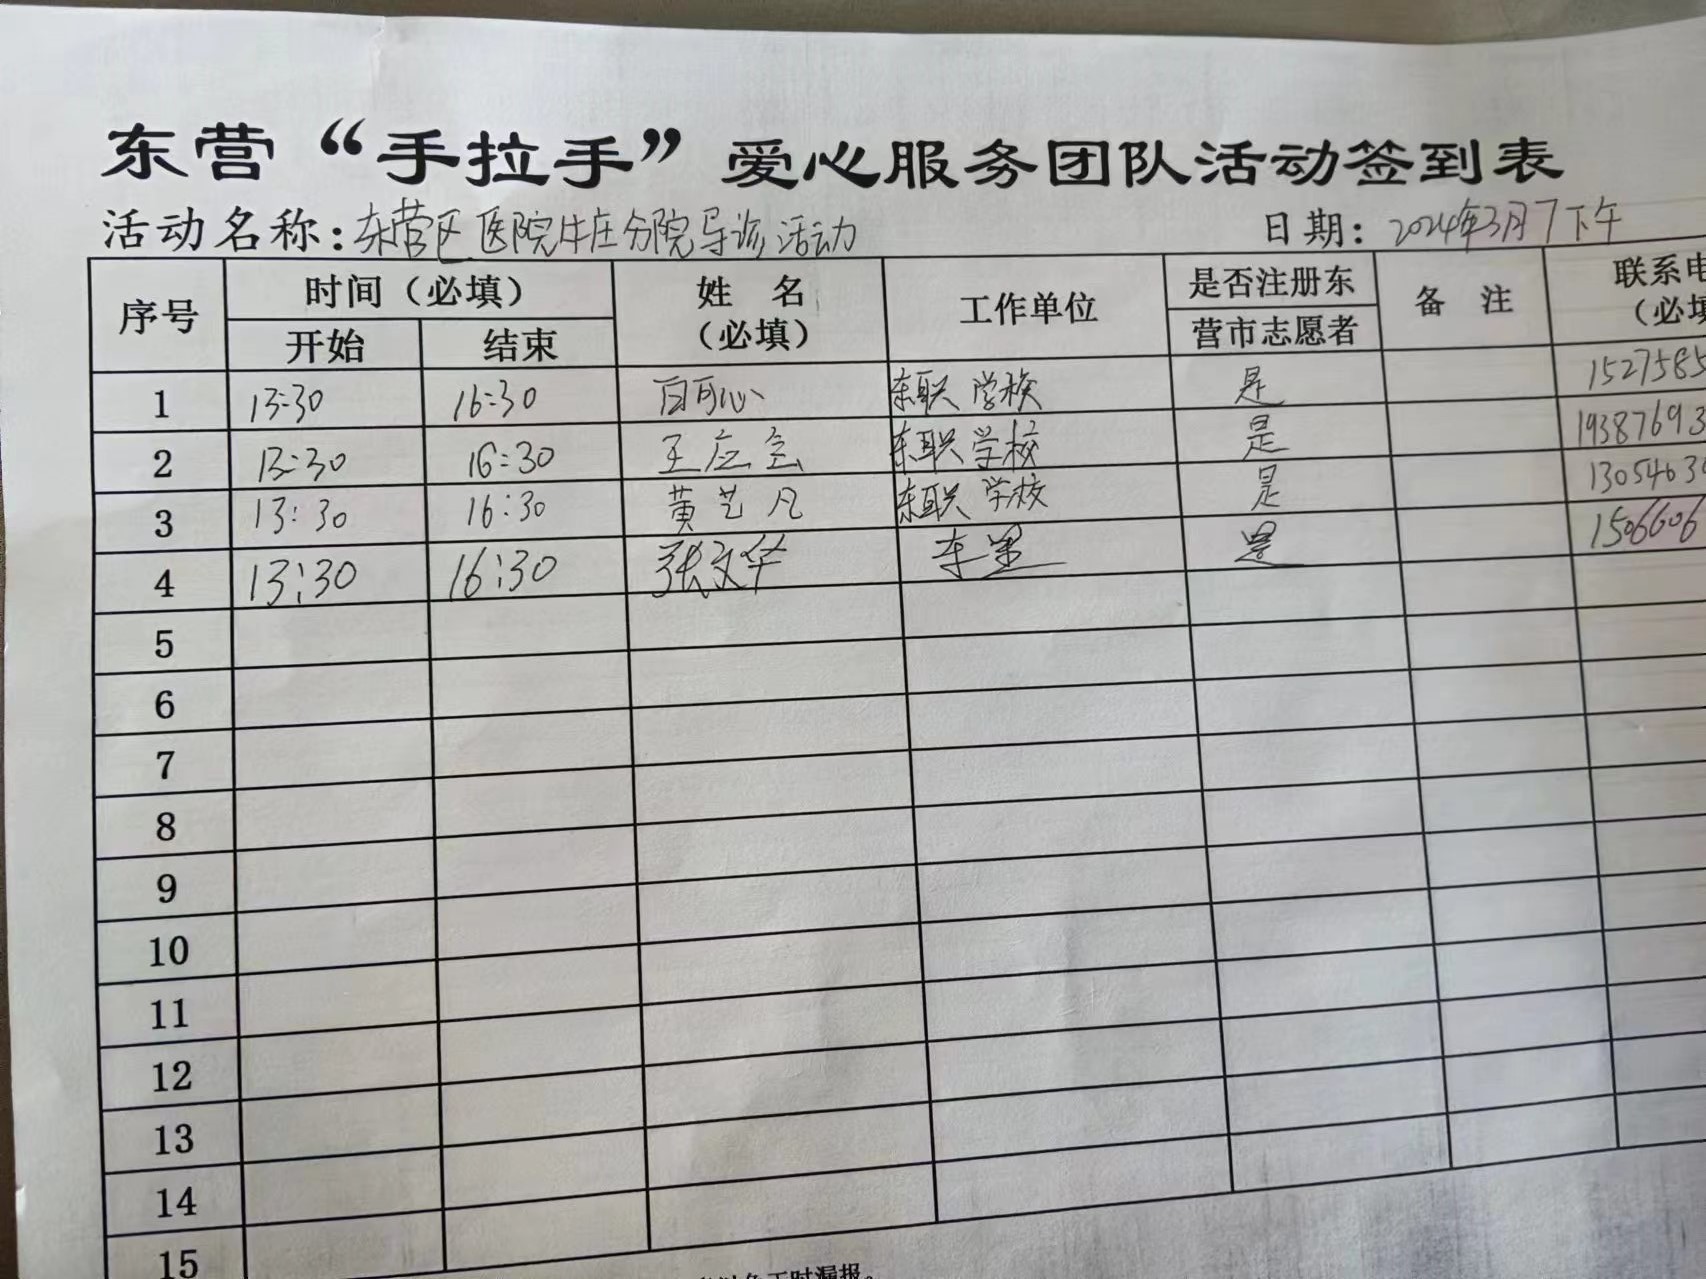 东营“手拉手”爱心服务团队活动签到表
活动名称：东营区医院牛庄分院导诊活动 日期：2024年3月7下午
序号 时间（必填） 姓 名（必填） 工作单位 是否注册东营市志愿者 备 注 联系电（必填
开始 结束
1 13:30 16:30 白可心 东职学校 是 1527585
2 13:30 16:30 王应会 东职学校 是 19387693
3 13:30 16:30 黄艺凡 东职学校 是 1305463
4 13:30 16:30 张文华 是 1506606
5
6
7
8
9
10
11
12
13
14
15
时漏报。